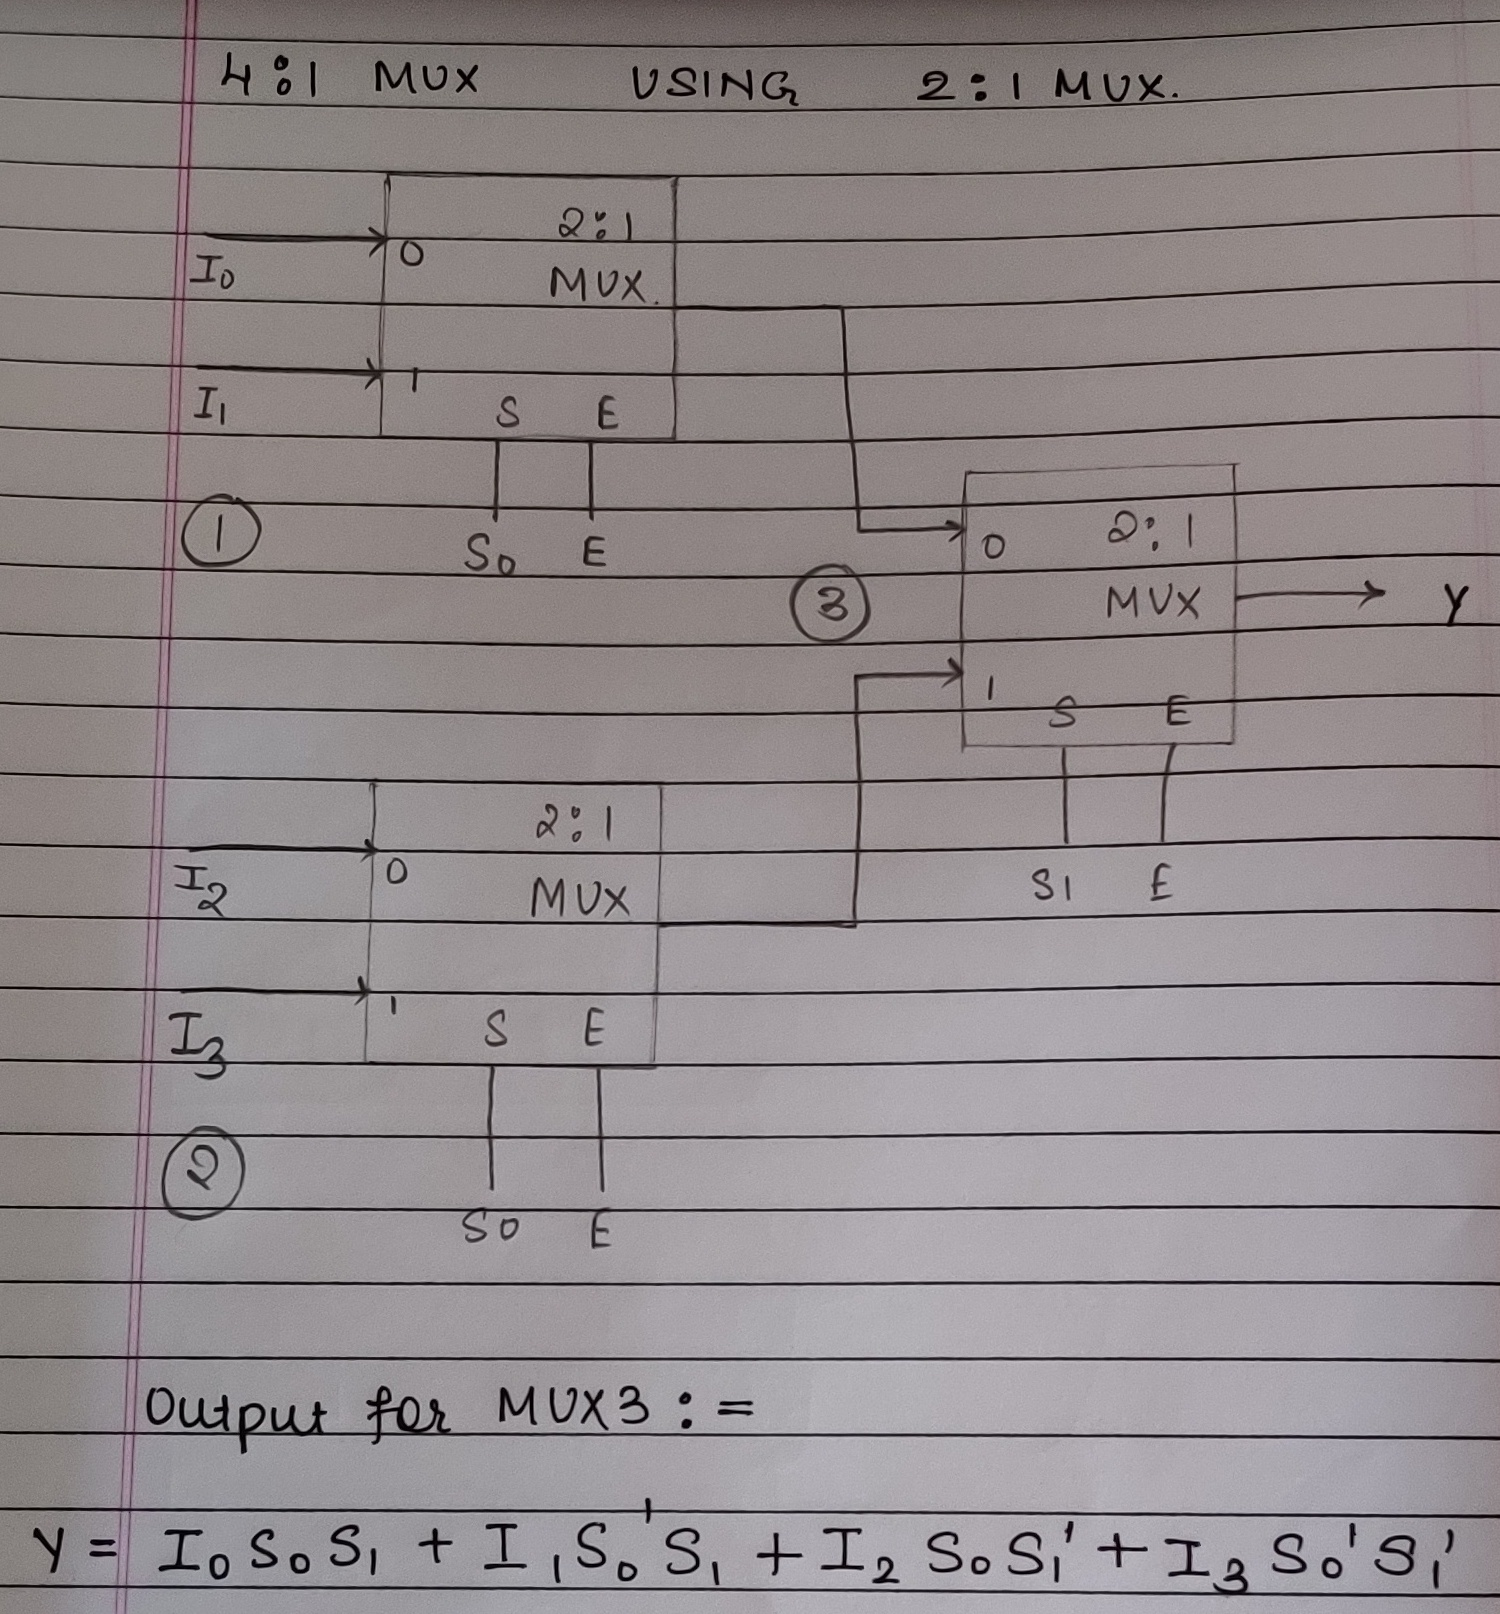 4:1 MUX USING 2:1 MUX.
2:1
I0 0 MUX.
I1 1 S E
1 S0 E
0 2:1
3 MUX Y
1 S E
2:1
I2 0 MUX
S1 E
I3 1 S E
2
S0 E
Output for MUX3 :=
Y = I0 S0 S1 + I1 S0' S1 + I2 S0 S1' + I3 S0' S1'